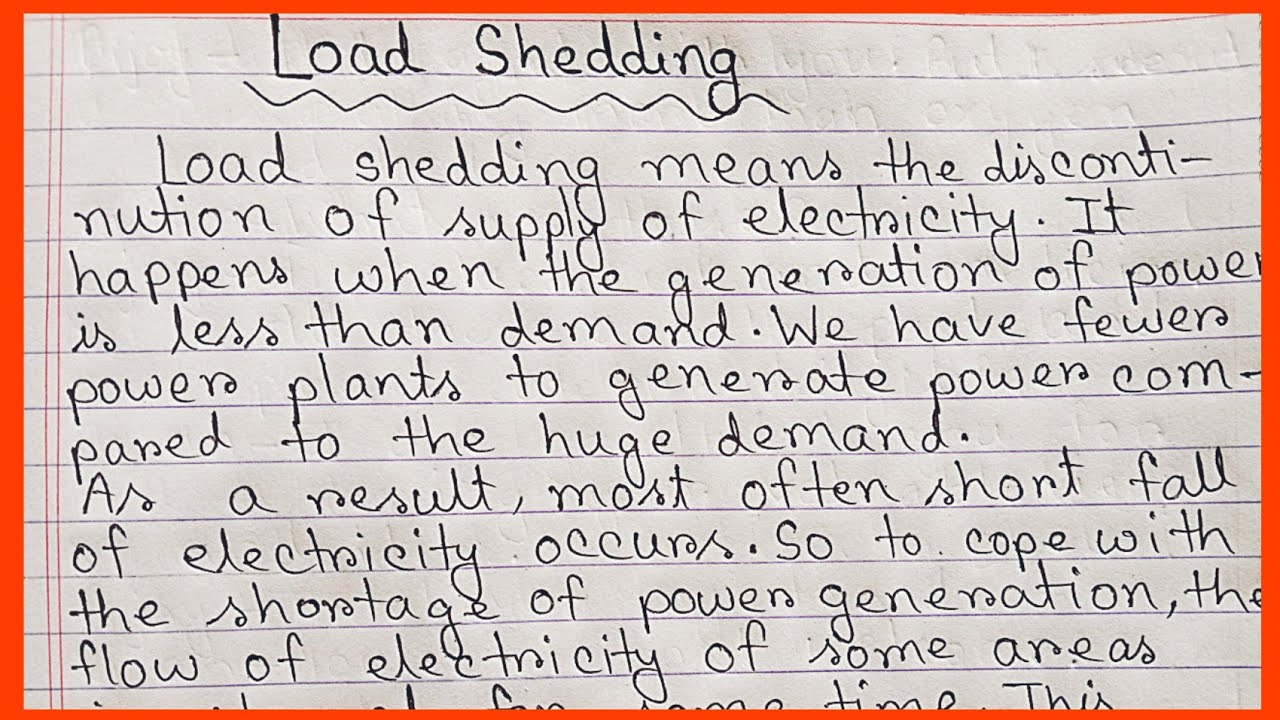 Load Shedding
Load shedding means the disconti-
nution of supply of electricity. It
happens when the generation of power
is less than demand. We have fewer
power plants to generate power com-
pared to the huge demand.
As a result, most often short fall
of electricity occurs. So to cope with
the shortage of power generation, the
flow of electricity of some areas
some time. This